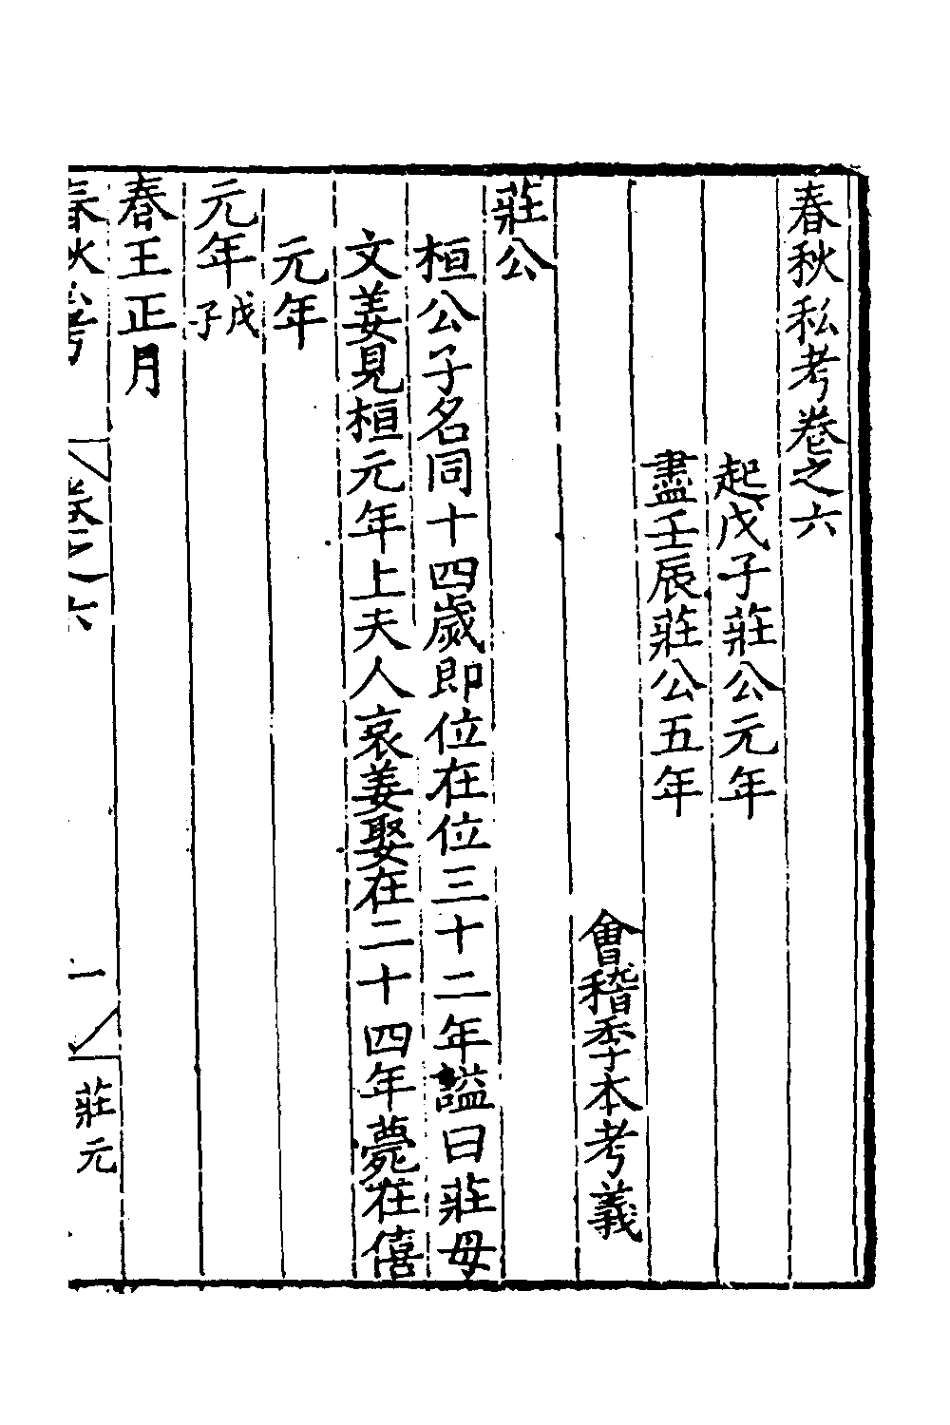 春秋私考卷之六
起戊子莊公元年
盡壬辰莊公五年
會稽季本考義
莊公
桓公子名同十四歲即位在位三十二年謚曰莊母
文姜見桓元年上夫人哀姜娶在二十四年薨在僖
元年
元年戊子
春王正月
春秋私考 卷之六 一 莊元